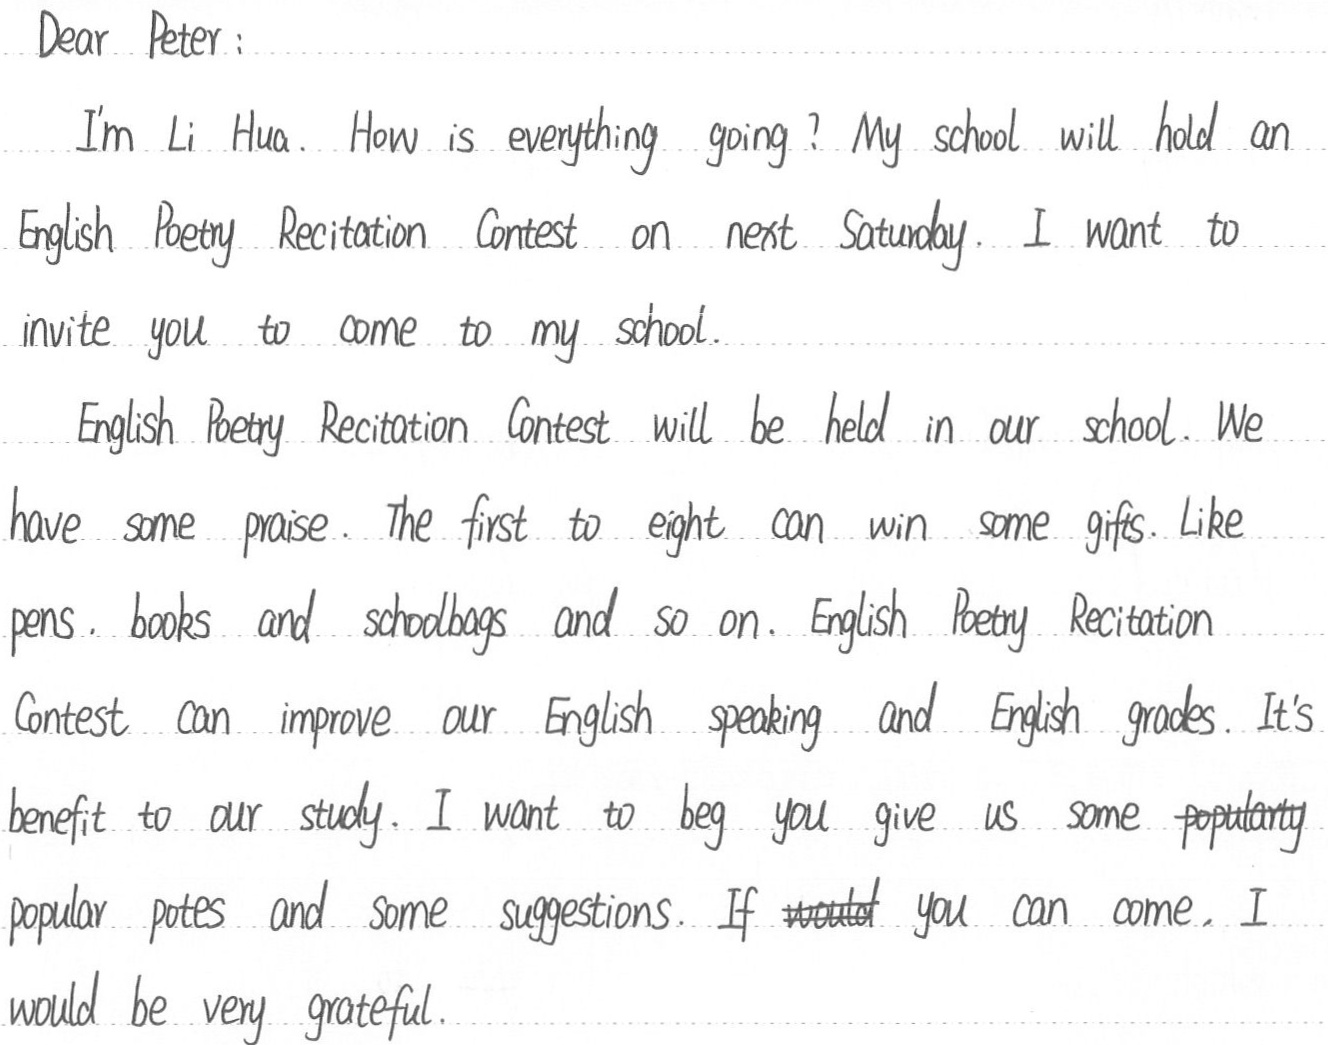 Dear Peter:
I'm Li Hua. How is everything going? My school will hold an
English Poetry Recitation Contest on next Saturday. I want to
invite you to come to my school.
English Poetry Recitation Contest will be held in our school. We
have some praise. The first to eight can win some gifts. Like
pens. books and schoolbags and so on. English Poetry Recitation
Contest can improve our English speaking and English grades. It's
benefit to our study. I want to beg you give us some popularty
popular potes and some suggestions. If would you can come. I
would be very grateful.